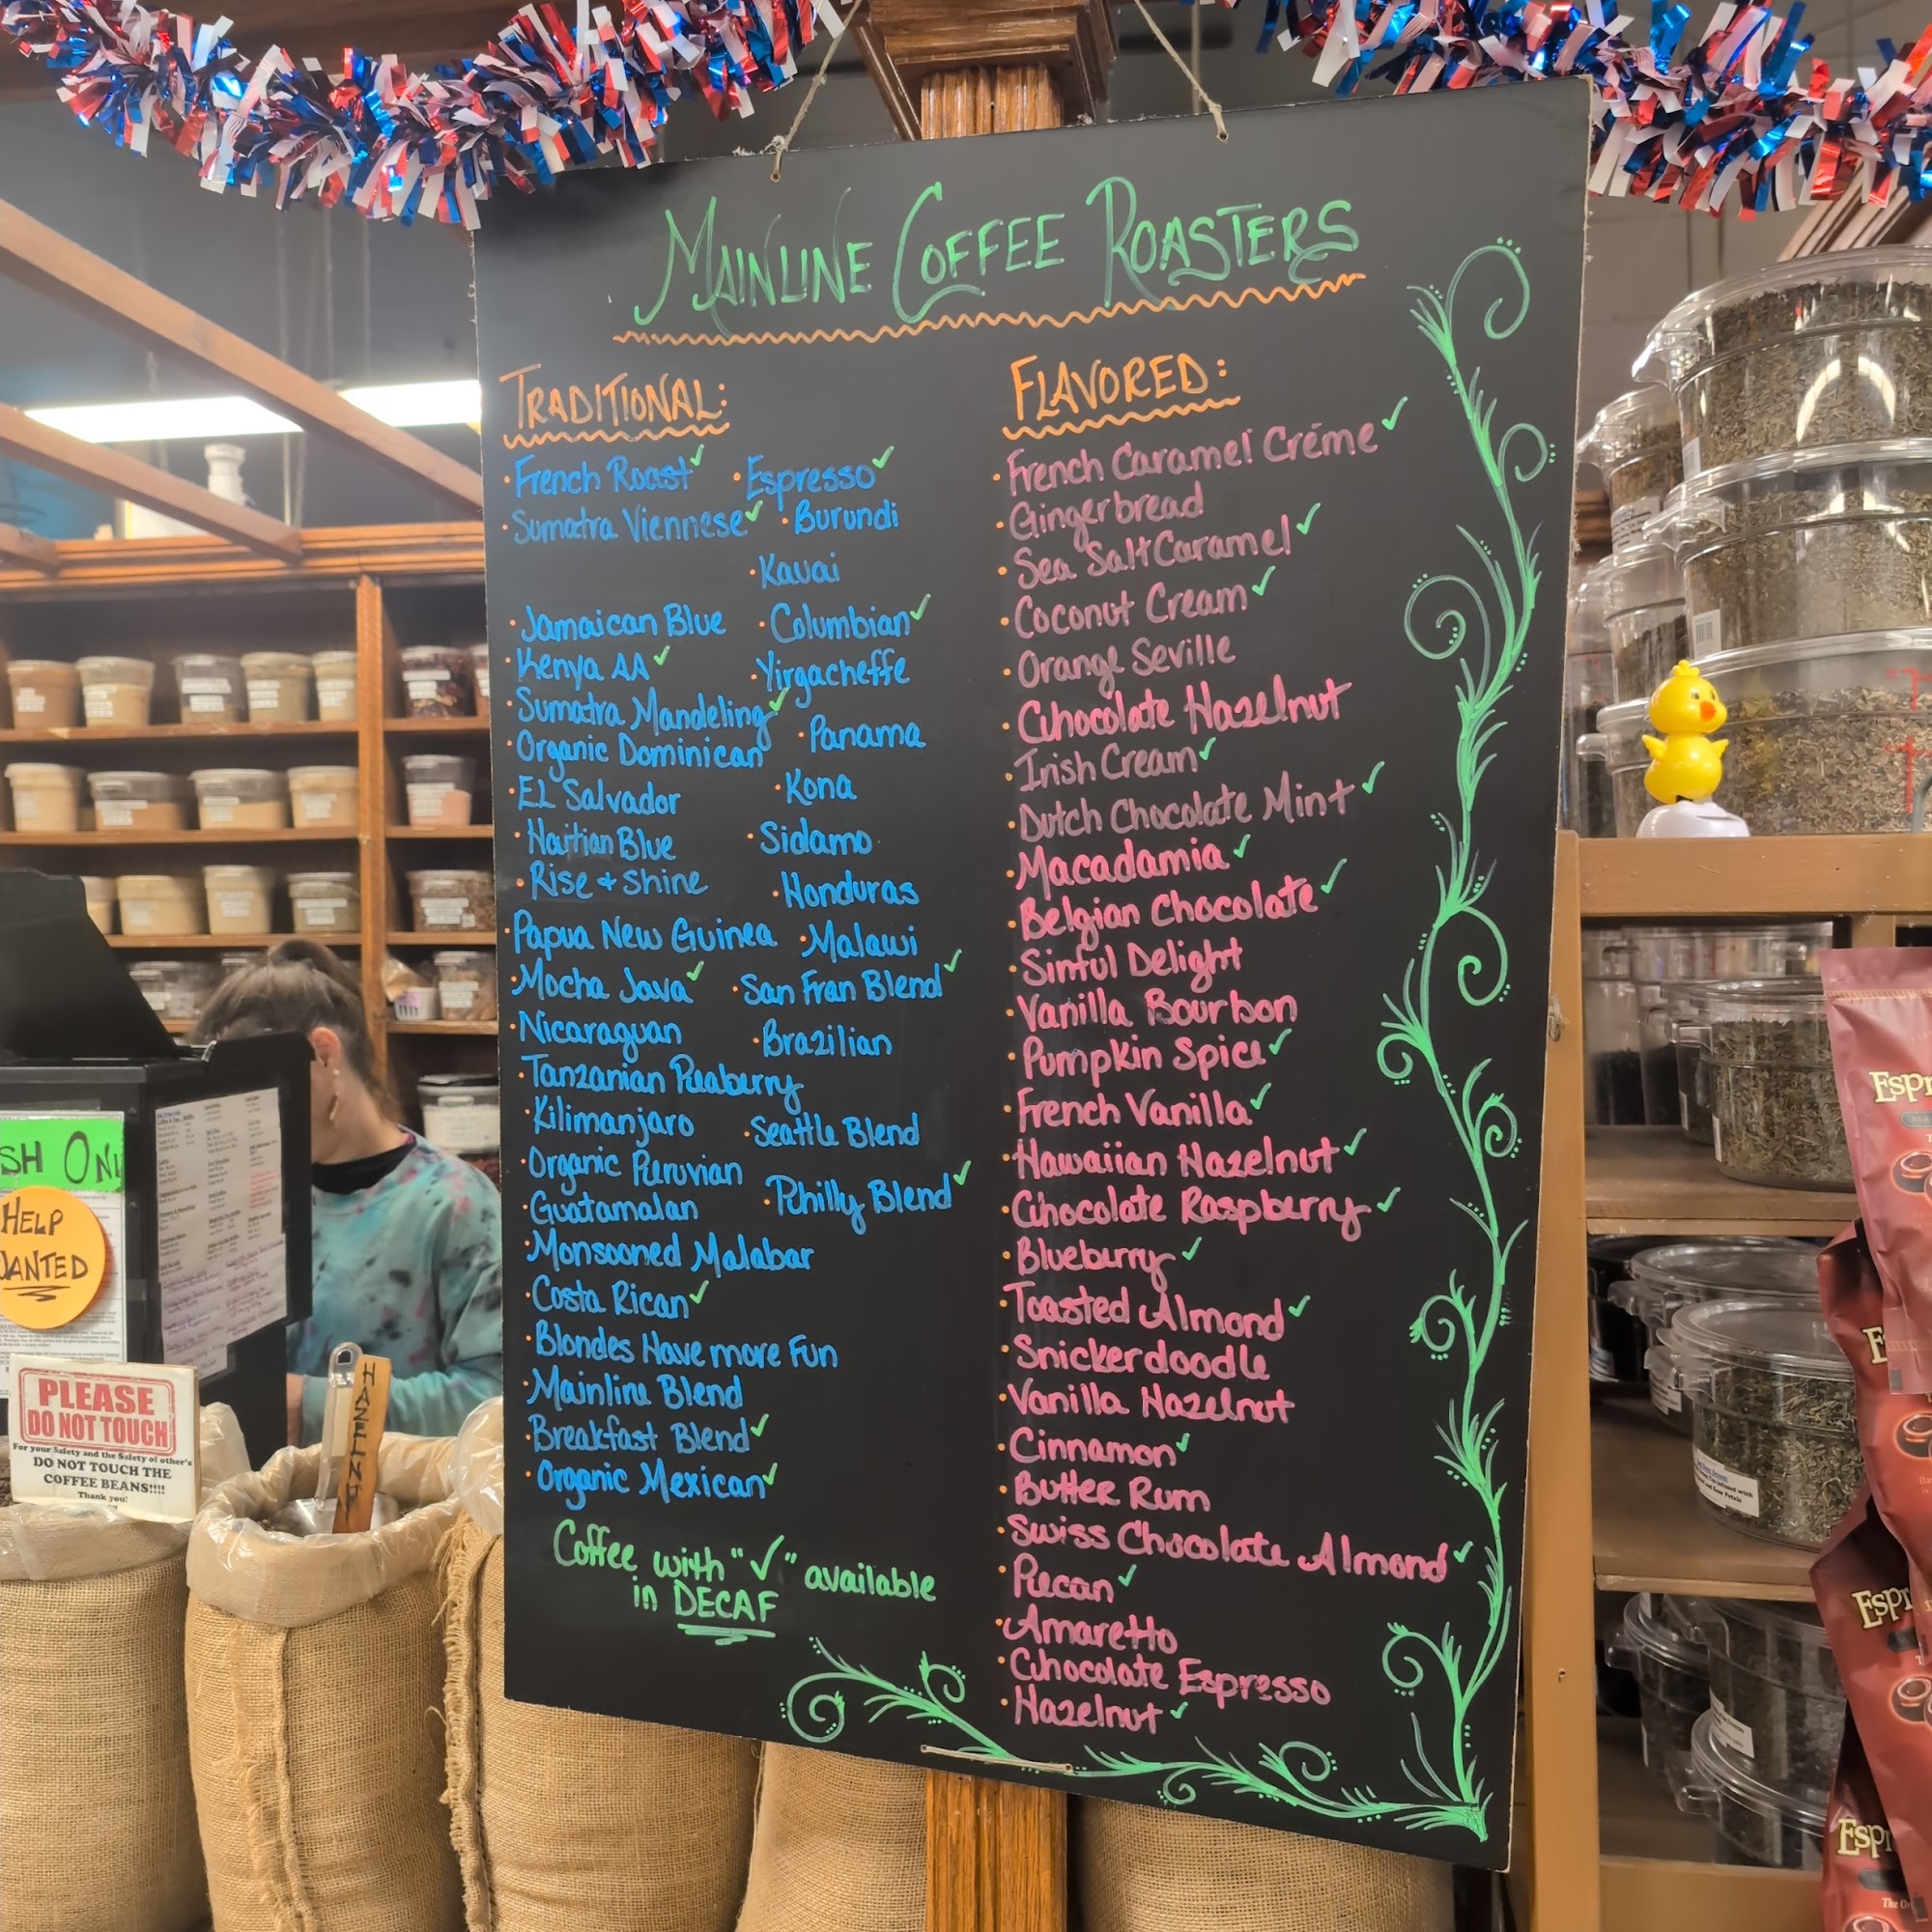 MAINLINE COFFEE ROASTERS
TRADITIONAL:
• French Roast ✓
• Sumatra Viennese ✓
• Jamaican Blue
• Kenya AA ✓
• Sumatra Mandeling ✓
• Organic Dominican
• EL Salvador
• Haitian Blue
• Rise + Shine
• Papua New Guinea
• Mocha Java ✓
• Nicaraguan
• Tanzanian Peaberry
• Kilimanjaro
• Organic Peruvian
• Guatamalan
• Monsooned Malabar
• Costa Rican ✓
• Blondes Have more Fun
• Mainline Blend
• Breakfast Blend ✓
• Organic Mexican ✓
• Espresso ✓
• Burundi
• Kauai
• Columbian ✓
• Yirgacheffe
• Panama
• Kona
• Sidamo
• Honduras
• Malawi
• San Fran Blend ✓
• Brazilian
• Seattle Blend
• Philly Blend ✓
Coffee with "✓" available
in DECAF
FLAVORED:
• French Caramel Créme ✓
• Gingerbread
• Sea Salt Caramel ✓
• Coconut Cream ✓
• Orange Seville
• Chocolate Hazelnut
• Irish Cream ✓
• Dutch Chocolate Mint ✓
• Macadamia ✓
• Belgian Chocolate ✓
• Sinful Delight
• Vanilla Bourbon
• Pumpkin Spice ✓
• French Vanilla ✓
• Hawaiian Hazelnut ✓
• Chocolate Raspberry ✓
• Blueberry ✓
• Toasted Almond ✓
• Snickerdoodle
• Vanilla Hazelnut
• Cinnamon ✓
• Butter Rum
• Swiss Chocolate Almond ✓
• Pecan ✓
• Amaretto
• Chocolate Espresso
• Hazelnut ✓
HELP
WANTED
PLEASE
DO NOT TOUCH
For your Safety and the Safety of other's
DO NOT TOUCH THE
COFFEE BEANS!!!!
Thank you!
HAZELNUT